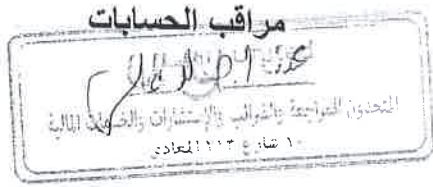 مراقب الحسابات
المتحدون للمراجعة والضرائب والإستشارات والخدمات المالية
١٠ شارع ١١٣ المعادى